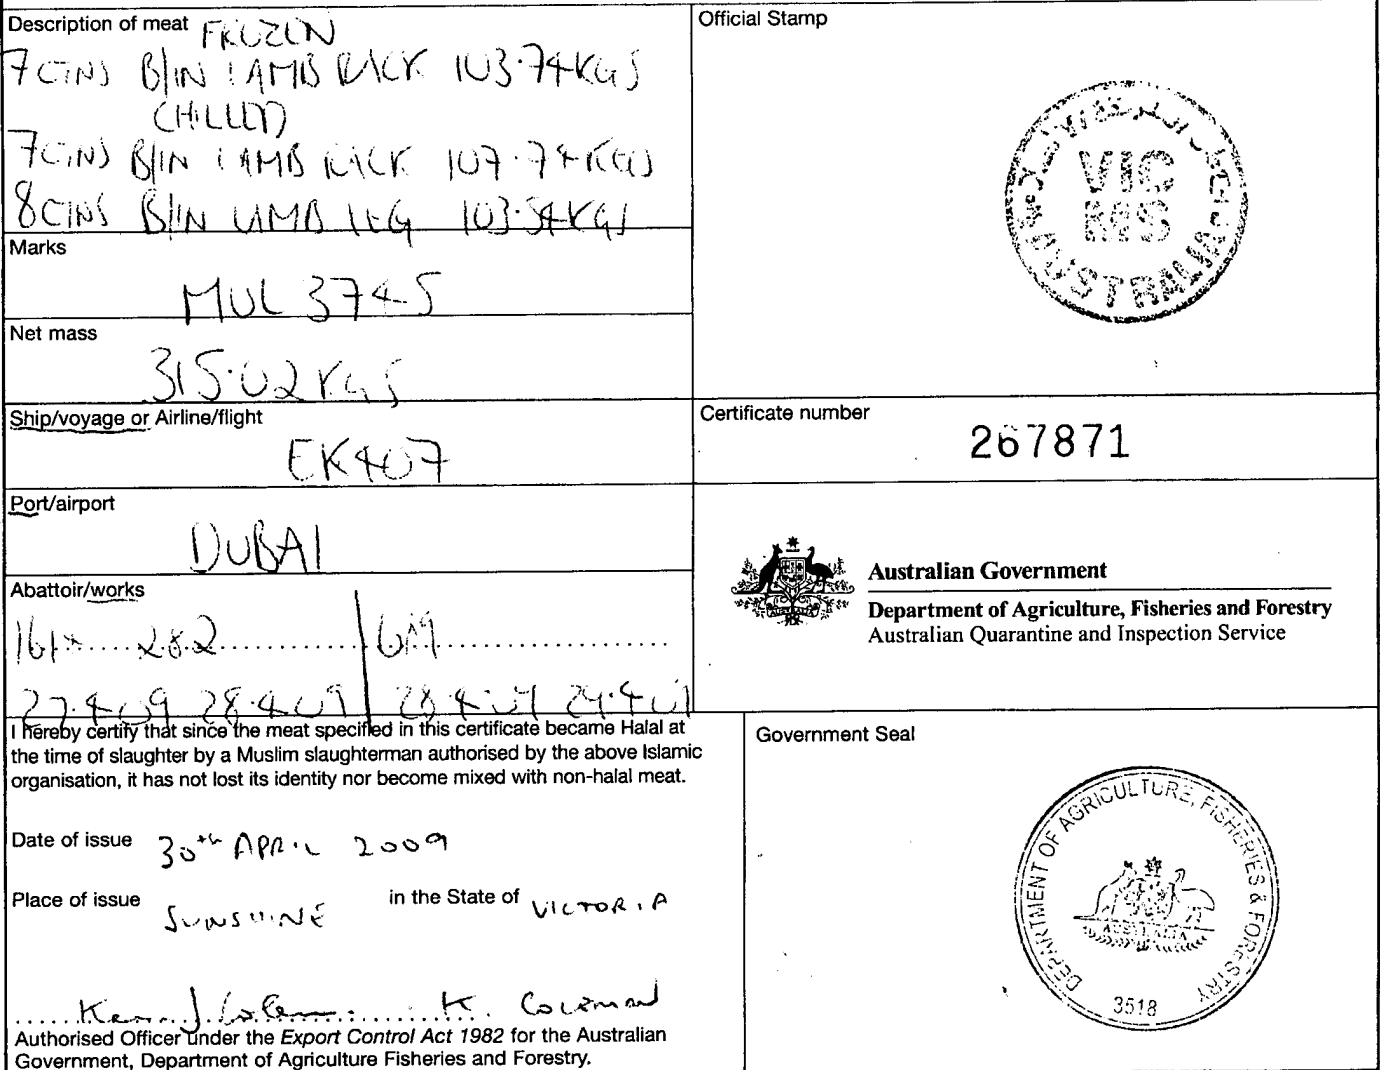 Description of meat FROZEN
7 CTNS B/IN LAMB RACK 103.74KGS
CHILLED
7 CTNS B/IN LAMB RACK 107.74KGS
8 CTNS B/IN LAMB LEG 103.54KGS
Marks
MUL 3745
Net mass
315.02KGS
Ship/voyage or Airline/flight
EK407
Port/airport
DUBAI
Abattoir/works
282
27.4.09 28.4.09 28.4.09 29.4.09
I hereby certify that since the meat specified in this certificate became Halal at
the time of slaughter by a Muslim slaughterman authorised by the above Islamic
organisation, it has not lost its identity nor become mixed with non-halal meat.
Date of issue 30th APRIL 2009
Place of issue SUNSHINE in the State of VICTORIA
K. COLEMAN
Authorised Officer under the Export Control Act 1982 for the Australian
Government, Department of Agriculture Fisheries and Forestry.
Official Stamp
VIC
MS
AUSTRALIA
Certificate number
267871
Australian Government
Department of Agriculture, Fisheries and Forestry
Australian Quarantine and Inspection Service
Government Seal
DEPARTMENT OF AGRICULTURE, FISHERIES & FORESTRY
AUSTRALIA
3518